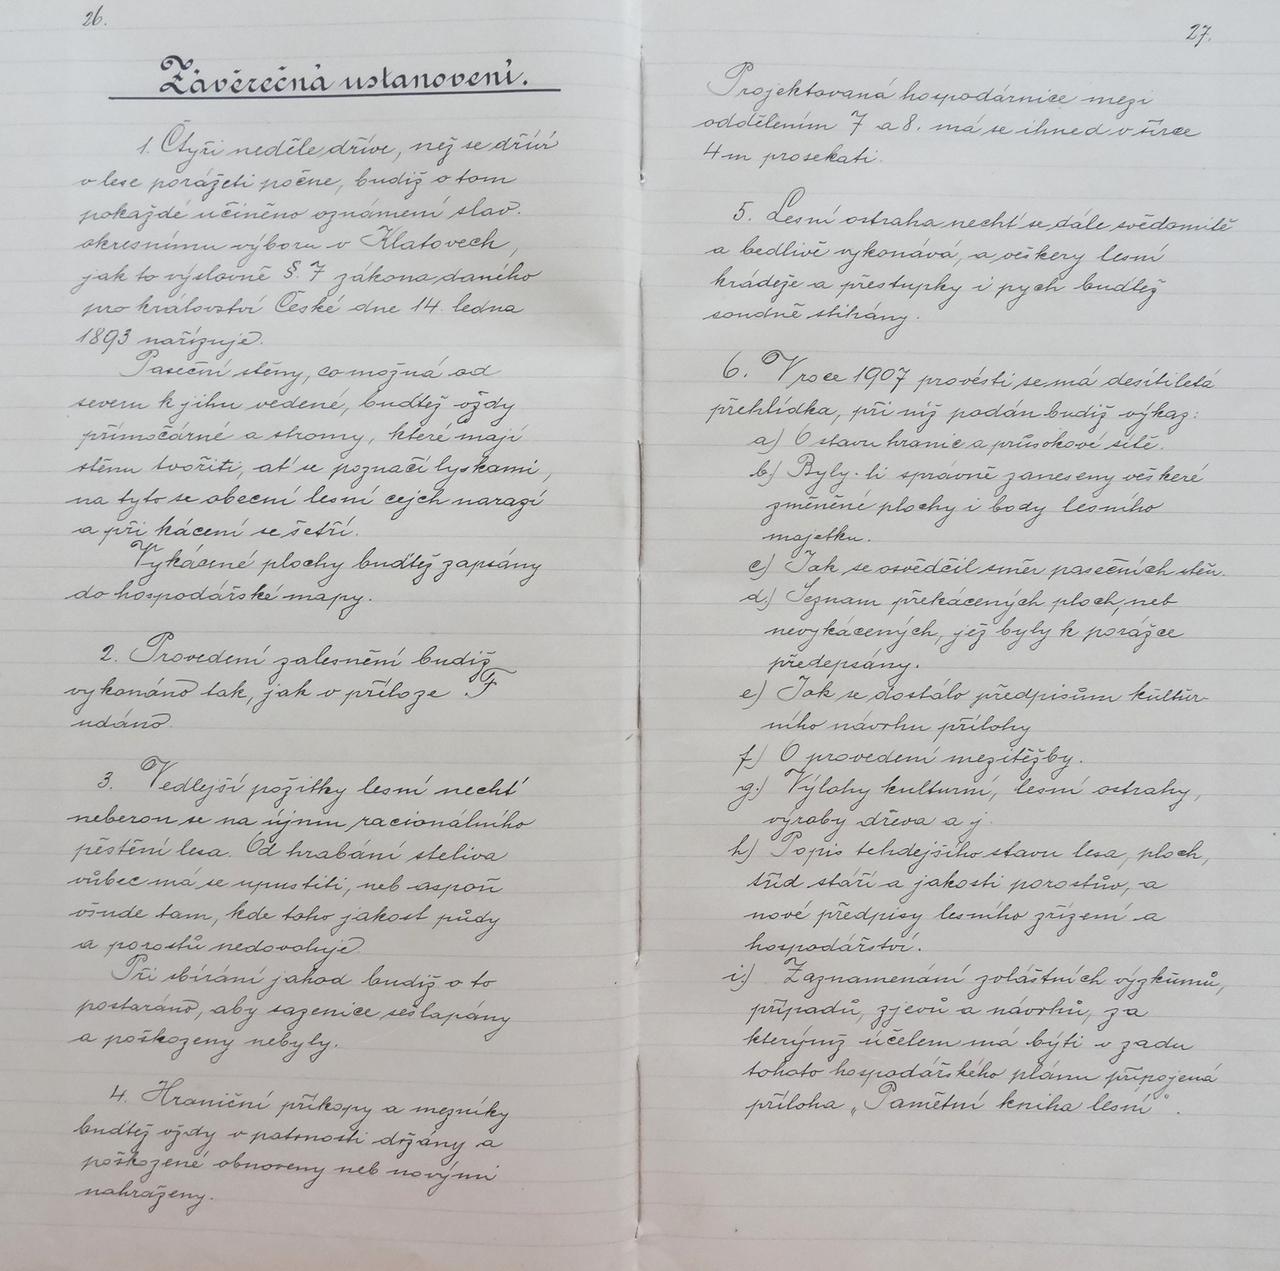 26.
Závěrečná ustanovení.
1. Čtyři neděle dříve, než se dříví
v lese porážeti počne, budiž o tom
pokaždé učiněno oznámení slav.
okresnímu výboru v Klatovech,
jak to výslovně §. 7 zákona daného
pro království České dne 14. ledna
1893 nařizuje.
Paseční stěny, co možná od
severu k jihu vedené, buďtež vždy
přímočárné a stromy, které mají
stěnu tvořiti, ať se poznačí lyskami,
na tyto se obecní lesní cejch narazí
a při kácení se šetří.
Vykácené plochy buďtež zapsány
do hospodářské mapy.
2. Provedení zalesnění budiž
vykonáno tak, jak v příloze F
udáno.
3. Vedlejší požitky lesní nechť
neberou se na újmu racionálního
pěstění lesa. Od hrabání steliva
vůbec má se upustiti, neb aspoň
všude tam, kde toho jakost půdy
a porostů nedovoluje.
Při sbírání jahod budiž o to
postaráno, aby sazenice sešlapány
a poškozeny nebyly.
4. Hraniční příkopy a mezníky
buďtež vždy v patrnosti držány a
poškozené obnoveny neb novými
nahraženy.
27.
Projektovaná hospodárnice mezi
oddělením 7 a 8. má se ihned v šírce
4 m prosekati.
5. Lesní ostraha nechť se dále svědomitě
a bedlivě vykonává, a veškery lesní
krádeže a přestupky i pych buďtež
soudně stihány.
6. V roce 1907 provésti se má desítiletá
přehlídka, při níž podán budiž výkaz:
a) O stavu hranic a průsekové sítě.
b) Byly-li správně zaneseny veškeré
změněné plochy i body lesního
majetku.
c) Jak se osvědčil směr pasečních stěn.
d.) Seznam překácených ploch, neb
nevykácených, jež byly k porážce
předepsány.
e) Jak se dostálo předpisům kultur-
ního návrhu přílohy
f.) O provedení mezitěžby.
g.) Výlohy kulturní, lesní ostrahy,
výroby dřeva a j.
h.) Popis tehdejšího stavu lesa, ploch,
tříd stáří a jakosti porostův, a
nové předpisy lesního zřízení a
hospodářství.
i.) Zaznamenání zvláštních výzkumů,
případů, zjevů a návrhů, za
kterýmž účelem má býti v zadu
tohoto hospodářského plánu připojená
příloha „Pamětní kniha lesní“.